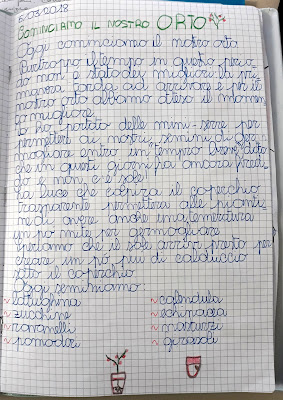 6/03/2018
COMINCIAMO IL NOSTRO ORTO
Oggi cominciamo il nostro orto.
Purtroppo il tempo in questo perio
do non è stato dei migliori: la pri
mavera tarda ad arrivare e per il
nostro orto abbiamo atteso il momen
to migliore.
Io ho portato delle mini-serre per
permettere ai nostri semini di ger
mogliare entro un tempo breve, dato
che in questi giorni fa ancora fred
do e non c'è sole!
La luce che colpirà il coperchio
trasparente permetterà alle pianti
ne di avere anche una temperatura
un po' mite per germogliare.
Speriamo che il sole arrivi presto per
creare un pò più di calduccio
sotto il coperchio.
Oggi seminiamo:
~lattughina ~calendula
~zucchine ~echinacea
~ravanelli
~pomodori ~girasoli